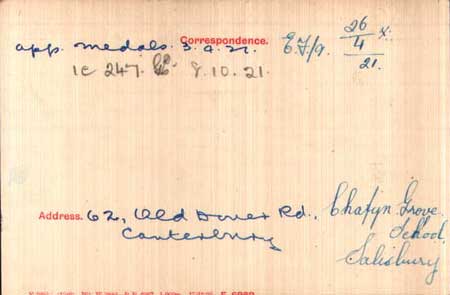 Correspondence.
app. medals. 3.9.21. E.F/9. 26/4/21. X.
1c 247. 8.10.21.
Address. 62, Old Dover Rd., Chafyn Grove
Canterbury School,
Salisbury